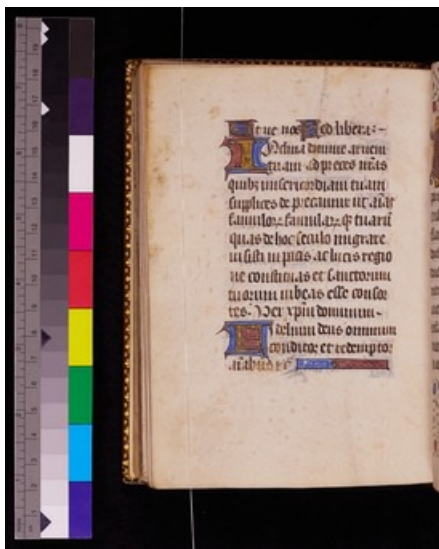 Et ne nos Sed libera :-
Inclina domine aurem
tuam ad preces nr̄as
quibꝰ misericordiam tuam
supplices deprecamur ut aīas
famuloꝝ famulaꝝqꝫ tuarū
quas de hoc seculo migrare
iussisti in pacis ac lucis regio
ne constituas et sanctorum
tuorum iubeas esse consor
tes. Per xp̄m dominum
Fidelium deus omnium
conditor et redemptor